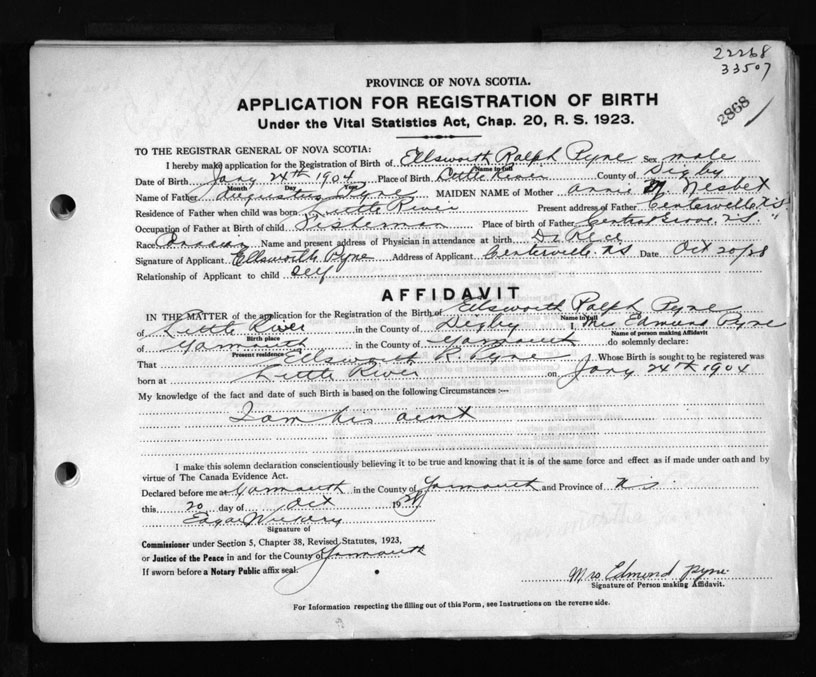 22268
33507
2868
PROVINCE OF NOVA SCOTIA.
APPLICATION FOR REGISTRATION OF BIRTH
Under the Vital Statistics Act, Chap. 20, R. S. 1923.
TO THE REGISTRAR GENERAL OF NOVA SCOTIA:
I hereby make application for the Registration of Birth of Ellsworth Ralph Pyne Sex male
Name in full
Date of Birth Jany 24th 1904 Place of Birth Little River County of Digby
Month Day Year
Name of Father Augustus Pyne MAIDEN NAME of Mother Annie Nesbet
Residence of Father when child was born Little River Present address of Father Centerville N.S.
Occupation of Father at Birth of child Fisherman Place of birth of Father Central Grove, N.S.
Race Name and present address of Physician in attendance at birth Dr Rice
Signature of Applicant Ellsworth Pyne Address of Applicant Centerville NS Date Oct 20/28
Relationship of Applicant to child Self
AFFIDAVIT
IN THE MATTER of the application for the Registration of the Birth of Ellsworth Ralph Pyne
Name in full
of Little River in the County of Digby I, Mrs Edmund Pyne
Birth place Name of person making Affidavit
of Yarmouth in the County of Yarmouth do solemnly declare:
Present residence
That Ellsworth R. Pyne Whose Birth is sought to be registered was
born at Little River on Jany 24th 1904
My knowledge of the fact and date of such Birth is based on the following Circumstances :—
I am his aunt
I make this solemn declaration conscientiously believing it to be true and knowing that it is of the same force and effect as if made under oath and by
virtue of The Canada Evidence Act.
Declared before me at Yarmouth in the County of Yarmouth and Province of N.S.
this 20 day of Oct 1928
Edgar
Signature of
Commissioner under Section 5, Chapter 38, Revised Statutes, 1923,
or Justice of the Peace in and for the County of Yarmouth
If sworn before a Notary Public affix seal.
Mrs Edmond Pyne
Signature of Person making Affidavit.
For Information respecting the filling out of this Form, see Instructions on the reverse side.